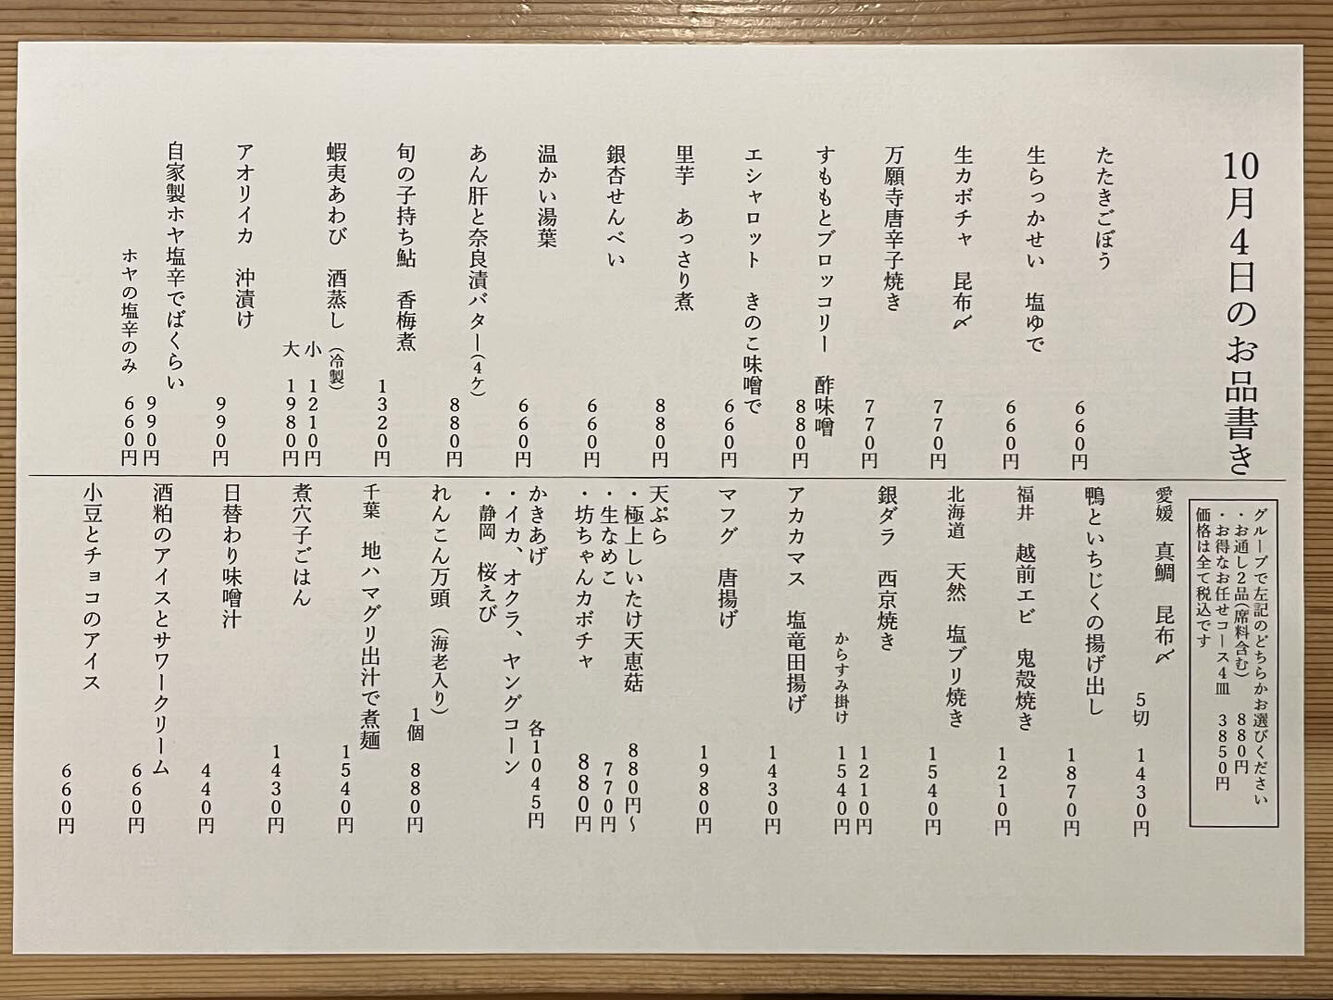 10月4日のお品書き
たたきごぼう
660円
生らっかせい 塩ゆで
660円
生カボチャ 昆布〆
770円
万願寺唐辛子焼き
770円
すももとブロッコリー 酢味噌
880円
エシャロット きのこ味噌で
660円
里芋 あっさり煮
880円
銀杏せんべい
660円
温かい湯葉
660円
あん肝と奈良漬バター(4ケ)
880円
旬の子持ち鮎 香梅煮
1320円
蝦夷あわび 酒蒸し(冷製)
小 1210円
大 1980円
アオリイカ 沖漬け
990円
自家製ホヤ塩辛でばくらい
990円
ホヤの塩辛のみ 660円
グループで左記のどちらかお選びください
・お通し2品(席料含む) 880円
・お得なお任せコース4皿 3850円
価格は全て税込です
愛媛 真鯛 昆布〆
5切 1430円
鴨といちじくの揚げ出し
1870円
福井 越前エビ 鬼殻焼き
1210円
北海道 天然 塩ブリ焼き
1540円
銀ダラ 西京焼き
1210円
からすみ掛け 1540円
アカカマス 塩竜田揚げ
1430円
マフグ 唐揚げ
1980円
天ぷら
・極上しいたけ天恵菇 880円〜
・生なめこ 770円
・坊ちゃんカボチャ 880円
かきあげ 各1045円
・イカ、オクラ、ヤングコーン
・静岡 桜えび
れんこん万頭(海老入り)
1個 880円
千葉 地ハマグリ出汁で煮麺
1540円
煮穴子ごはん
1430円
日替わり味噌汁
440円
酒粕のアイスとサワークリーム
660円
小豆とチョコのアイス
660円